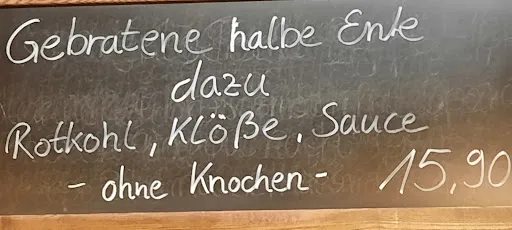 Gebratene halbe Ente
dazu
Rotkohl, Klöße, Sauce
- ohne Knochen - 15,90